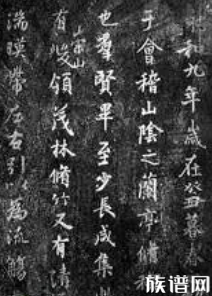 永和九年歲在癸丑暮春
于會稽山陰之蘭亭脩禊
也羣賢畢至少長咸集此
有崇山峻領茂林脩竹又有清
湍暎帶左右引以為流觴
族谱网